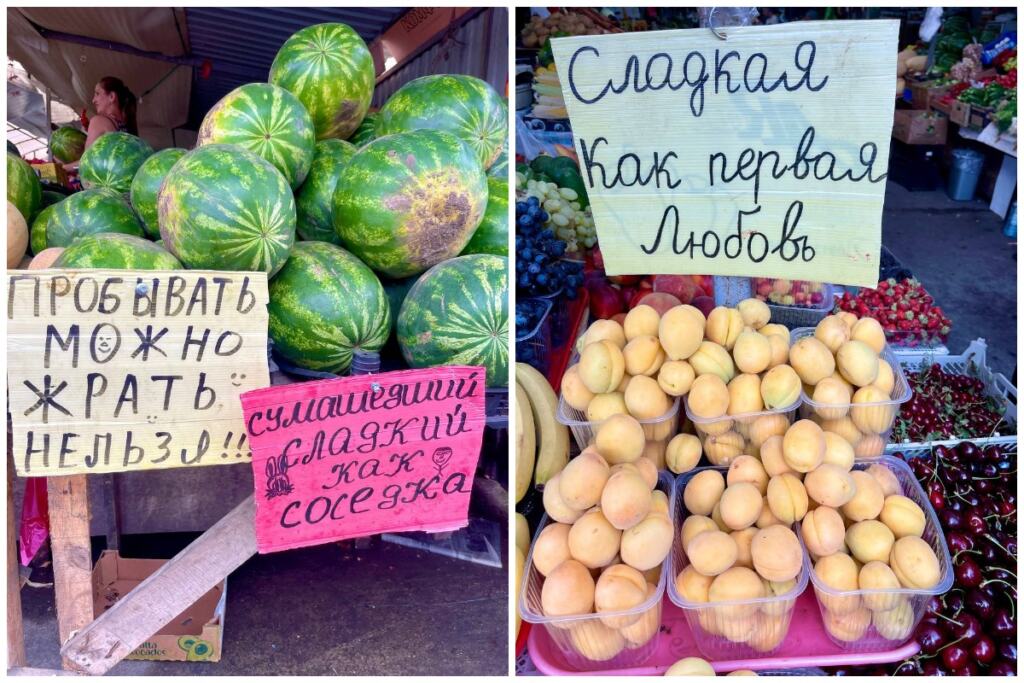 ПРОБЫВАТЬ
МОЖНО
ЖРАТЬ
НЕЛЬЗЯ!!!
СУМАШЕДШИЙ
СЛАДКИЙ
КАК
СОСЕДКА
Сладкая
Как первая
Любовь